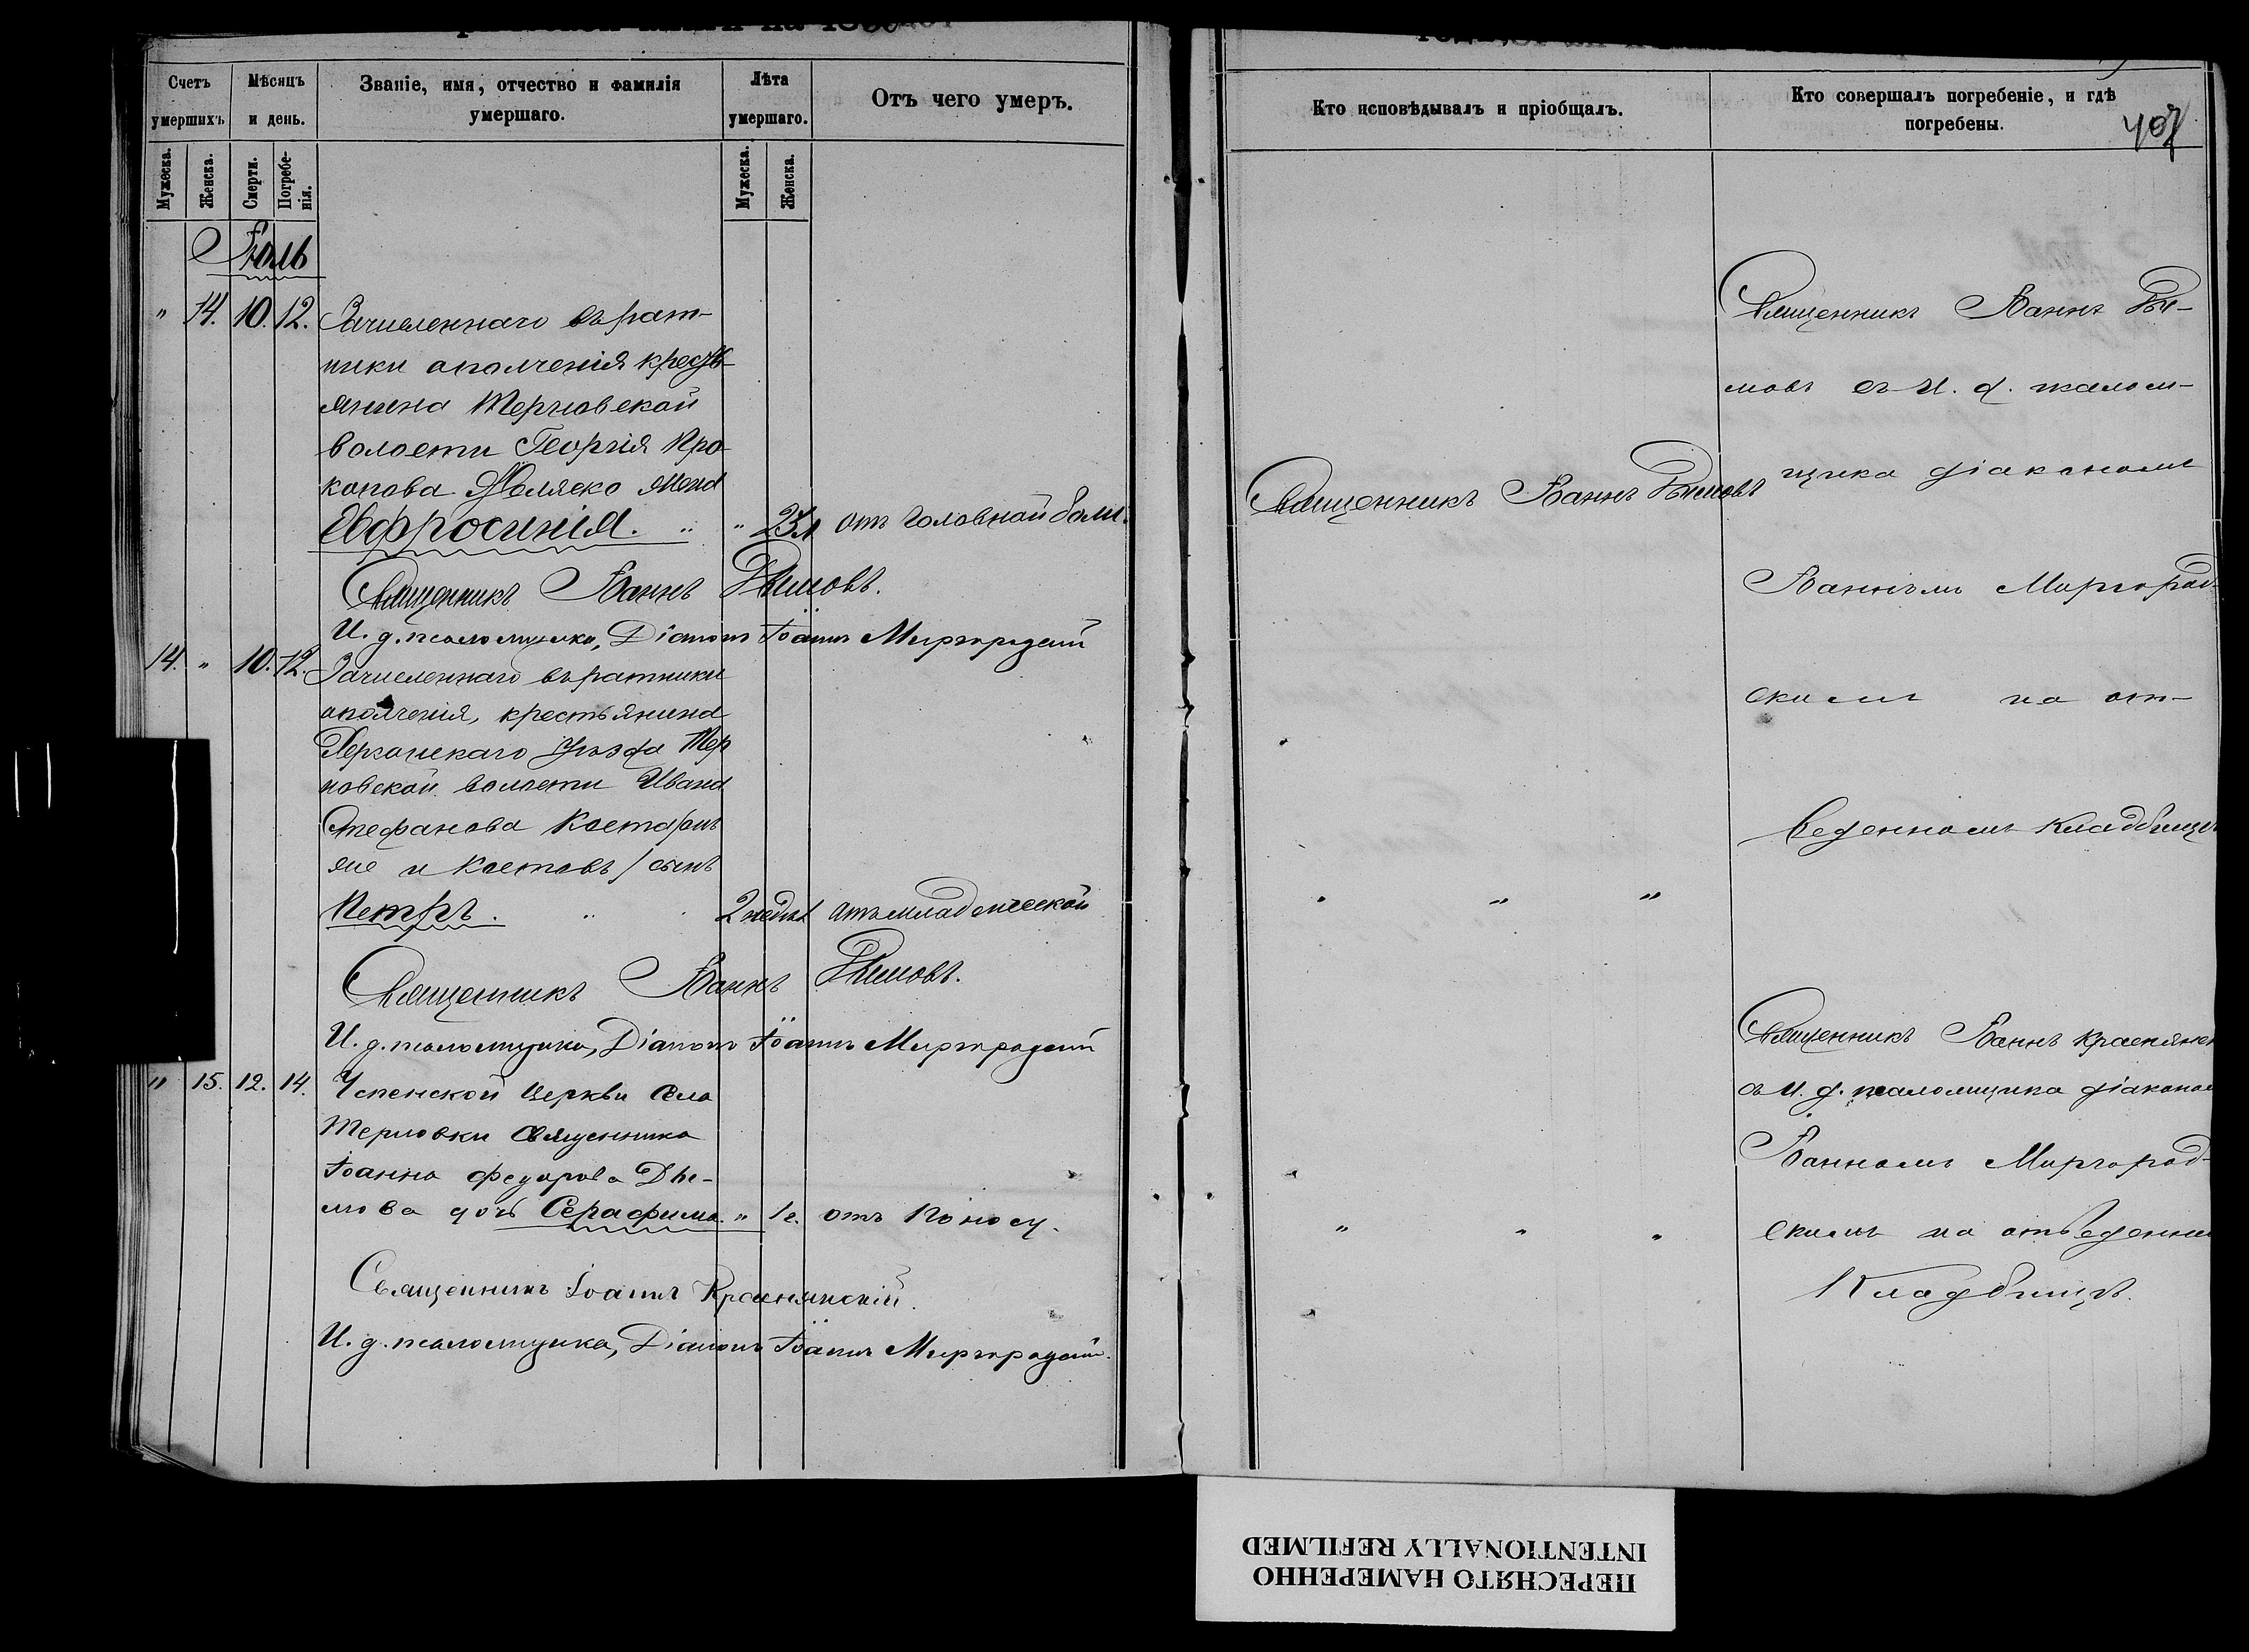 Счетъ умершихъ
Мѣсяцъ и день.
Званіе, имя, отчество и фамилія умершаго.
Лѣта умершаго.
Отъ чего умеръ.
Мужеска.
Женска.
Смерти.
Погребенія.
Мужеска.
Женска.
Іюль
" 14. 10. 12. Зачисленнаго въ рат-
ники ополченія кресть-
янина Терновской
волости Георгія Про-
копова жена
Евфросинія. " 23 л отъ головной боли.
Священникъ Іоаннъ Дымовъ.
И. д. псаломщика, Діаконъ Іоаннъ Миргородскій
14. " 10. 12. Зачисленнаго въ ратники
ополченія, крестьянина
Херсонскаго уѣзда Тер
новской волости Ивана
Стефанова Коста (онъ
же и Костовъ) сынъ
Петръ. 2 недѣл отъ младенческой
Священникъ Іоаннъ Дымовъ.
И. д. псаломщика, Діаконъ Іоаннъ Миргородскій
" 15. 12. 14. Успенской Церкви Села
Терновки Священника
Іоанна Федорова Ды-
мова дочь Серафима. " 1 г. отъ поносу.
Священникъ Іоаннъ Краснянскій.
И. д. псаломщика, Діаконъ Іоаннъ Миргородскій.
Кто исповѣдывалъ и пріобщалъ.
Кто совершалъ погребеніе, и гдѣ
погребены.
407
Священникъ Іоаннъ Дымовъ
" "
" " "
Священникъ Іоаннъ Ды-
мовъ съ И. д. псалом-
щика діакономъ
Іоанномъ Миргород-
скимъ на от-
веденномъ кладбищѣ
Священникъ Іоаннъ Краснянск
съ И. д. псаломщика діаконом
Іоанномъ Миргород-
скимъ на отведенном
Кладбищѣ.
ПЕРЕСНЯТО НАМЕРЕННО
INTENTIONALLY REFILMED